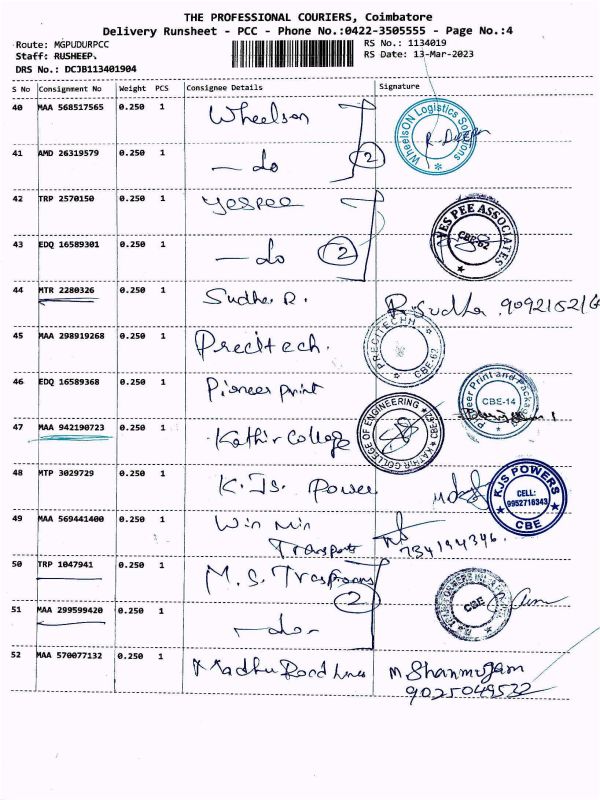 THE PROFESSIONAL COURIERS, Coimbatore
Delivery Runsheet - PCC - Phone No.:0422-3505555 - Page No.:4
Route: MGPUDURPCC
RS No.: 1134019
Staff: RUSHEEP.
RS Date: 13-Mar-2023
DRS No.: DCJB113401904
S No Consignment No Weight PCS Consignee Details Signature
40 MAA 568517565 0.250 1 Wheelson
WheelsON Logistics Solutions
41 AMD 26319579 0.250 1 - do 2
42 TRP 2570150 0.250 1 yespee
YES PEE ASSOCIATES CBE-62
43 EDQ 16589301 0.250 1 - do 2
44 MTR 2280326 0.250 1 Sudha R. R. Sudha
45 MAA 298919268 0.250 1 Precitech.
PRECITECHH CBE-62
46 EDQ 16589368 0.250 1 Pioneer print
Pioneer Print and Package CBE-14
47 MAA 942190723 0.250 1 Kathir College
KATHIR COLLEGE OF ENGINEERING CBE-62
48 MTP 3029729 0.250 1 K.Js. Power
KJS POWERS CELL: 9952716343 CBE
49 MAA 569441400 0.250 1 Win Win
Transports
50 TRP 1047941 0.250 1 M.S. 2
CBE
51 MAA 299599420 0.250 1 - do -
52 MAA 570077132 0.250 1 Madhu Road Lines M Shanmugam
9025049522